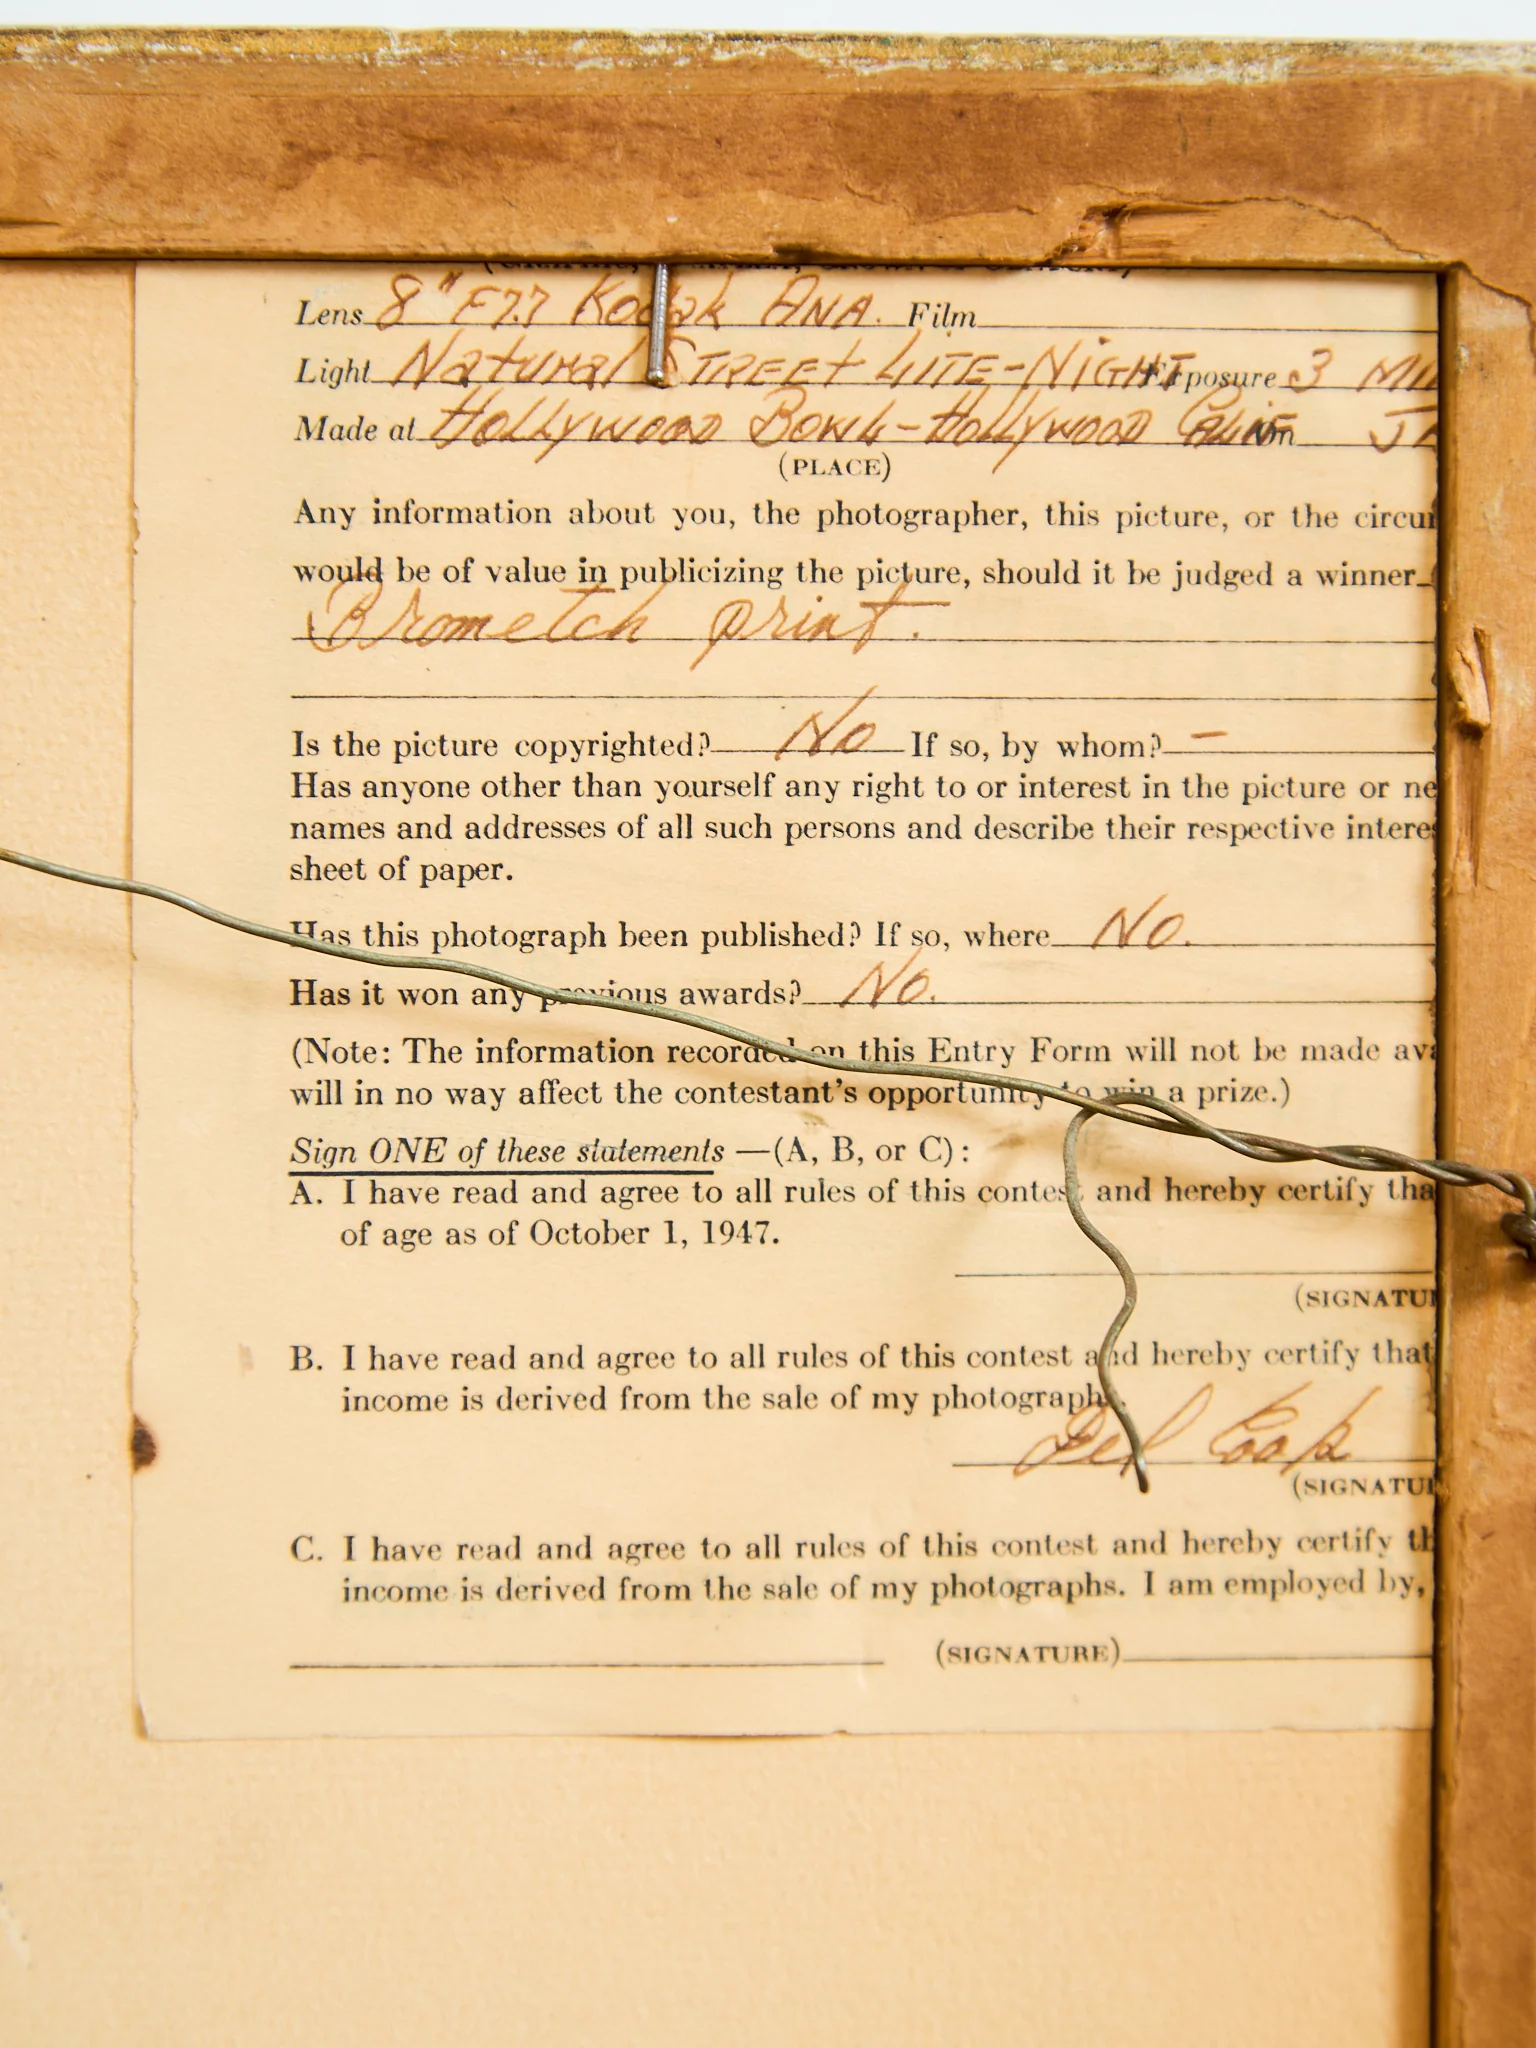 Lens 8" F7.7 Kodak ANA. Film
Light Natural STREET LITE-NIGHT Exposure 3
Made at HOLLYWOOD BOWL-HOLLYWOOD CALIF on
(PLACE)
Any information about you, the photographer, this picture, or the
would be of value in publicizing the picture, should it be judged a winner
Brometch print.
Is the picture copyrighted? No If so, by whom? -
Has anyone other than yourself any right to or interest in the picture or
names and addresses of all such persons and describe their respective
sheet of paper.
Has this photograph been published? If so, where No.
Has it won any previous awards? No.
(Note: The information recorded on this Entry Form will not be made
will in no way affect the contestant's opportunity to win a prize.)
Sign ONE of these statements —(A, B, or C):
A. I have read and agree to all rules of this contest and hereby certify
of age as of October 1, 1947.
B. I have read and agree to all rules of this contest and hereby certify that
income is derived from the sale of my photographs.
Del Cook
C. I have read and agree to all rules of this contest and hereby certify
income is derived from the sale of my photographs. I am employed by,
(SIGNATURE)